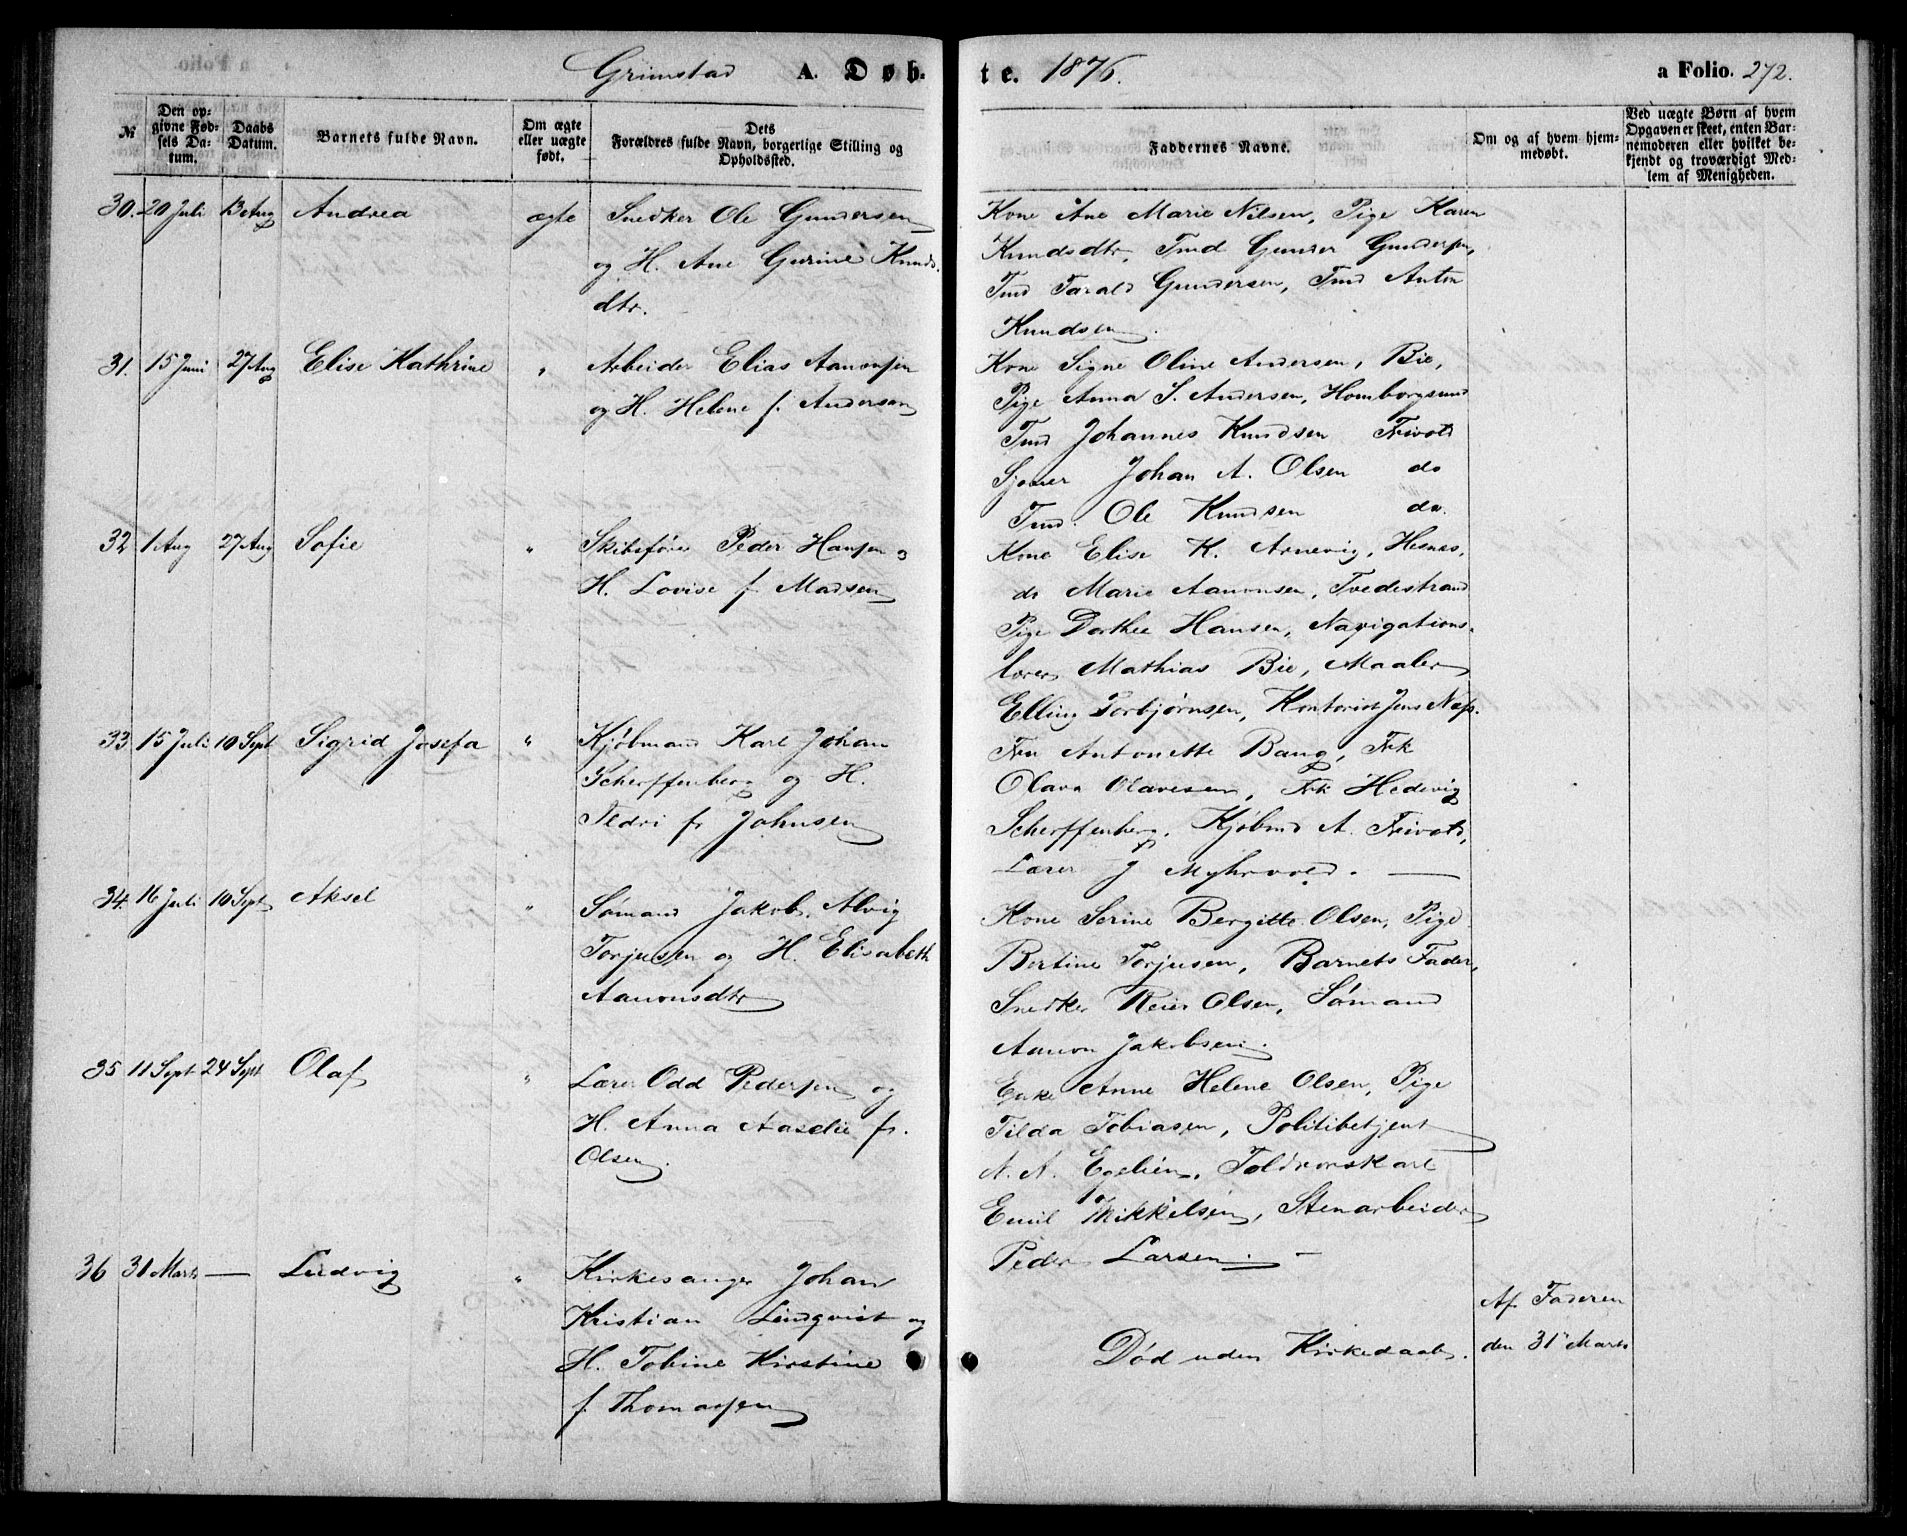 Grimstad A. Døb- te. 1876. a Folio. 272.
№
Den opgivne Fødsels Datum.
Daabs Datum.
Barnets fulde Navn.
Om ægte eller uægte født.
Dets Forældres fulde Navn, borgerlige Stilling og Opholdssted.
Faddernes Navne.
Om og af hvem hjemmedøbt.
Ved uægte Børn af hvem Opgaven er skeet, enten Barnemoderen eller hvilket bekjendt og troværdigt Medlem af Menigheden.
30. 20 Juli 13 Aug Andrea ægte Snedker Ole Gundersen
og H. Ane Gurine Knuds
dtr.
Kone Ane Marie Nilsen, Pige Karen
Knudsdtr, Tmd Gunder Gundersen,
Tmd Tarald Gundersen, Tmd Anton
Knudsen.
31. 15 Juni 27 Aug Elise Kathrine " Arbeider Elias Aanonsen
og H. Helene f. Andersen
Kone Signe Oline Andersen, Bie,
Pige Anna S. Andersen, Homborgsund
Tmd Johannes Knudsen Frivold
Sjømer Johan A. Olsen do
Tmd. Ole Knudsen do.
32 1 Aug 27 Aug Sofie " Skibsfører Peder Hansen o
H. Lovise f. Madsen
Kone Elise K. Arnevig, Hesnes,
do Marie Aanonsen, Tvedestrand
Pige Dorthee Hansen, Navigations-
lærer Mathias Bie, Maaler
Elling Torbjørnsen, Kontorist Jens Næss.
33 15 Juli 10 Sept Sigrid Josefa " Kjøbmand Karl Johan
Scherffenberg og H.
Ildri f. Johnsen
Fru Antonette Bang, Frk
Olava Olavesen, Frk Hedevig
Scherffenberg, Kjøbmd A. Frivold,
Lærer J Myhrvold. —
34. 16 Juli 10 Sept Aksel " Sømand Jakob Alvig
Torjusen og H. Elisabeth
Aanonsdtr
Kone Serine Bergitte Olsen, Pige
Bertine Torjusen, Barnets Fader,
Snedker Reier Olsen, Sømand
Aanon Jakobsen.
35 11 Sept 24 Sept Olaf " Lærer Odd Pedersen og
H. Anna Aaselie f.
Olsen.
Enke Anne Helene Olsen, Pige
Tilda Tobiasen, Politibetjent
N. A. Egelien, Toldrorskarl
Emil Mikkelsen, Stenarbeider
Peder Larsen. —
36 31 Marts — Ludvig " Kirkesanger Johan
Kristian Lindqvist og
H. Tobine Kirstine
f. Thomassen
Død uden Kirkedaab.
Af Faderen
den 31 Marts